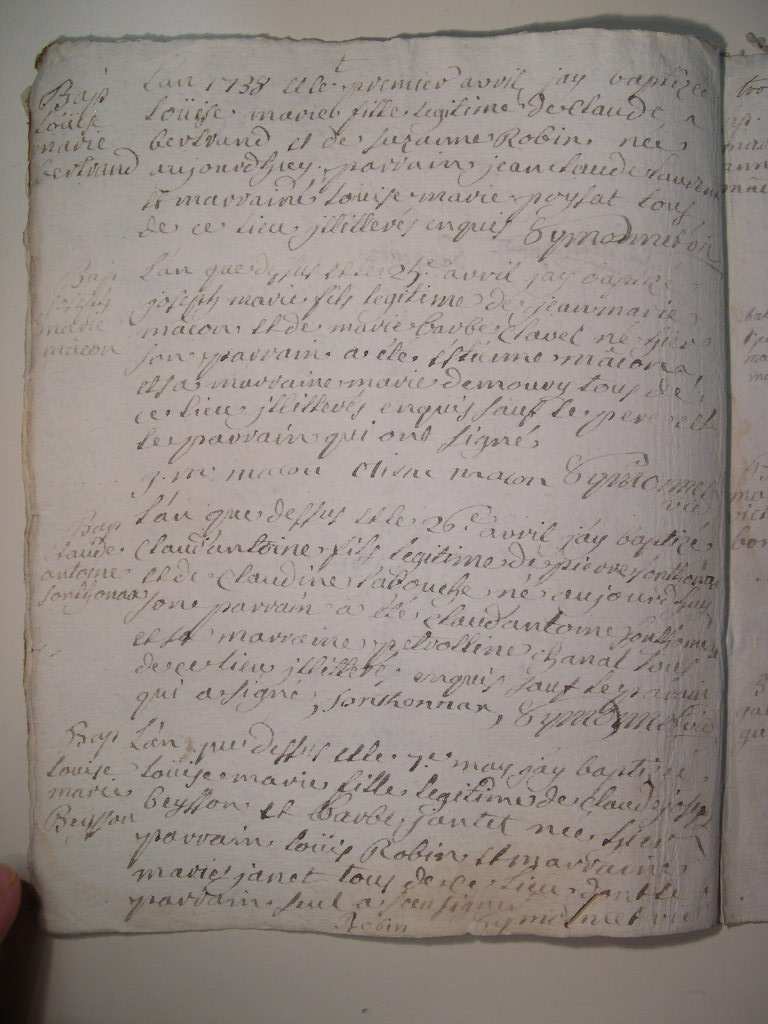 Bap
Loüise
marie
bertrand
L'an 1738 et le premier avril jay baptizé
Loüise marie fille legitime de Claude
bertrand et de suzanne Robin née
aujourdhuy parrain jean claude
et marraine Louise marie poysat tous
de ce lieu jllitterés enquis
Bap
joseph
marie
mâcon
L'an que dessus et le avril jay baptizé
joseph marie fils legitime de jean marie
mâcon et de marie barbe Clavel né hier
son parrain a été estienne mâcon
et sa marraine marie demoury tous de
ce lieu jllitterés enquis sauf le pere et
le parrain qui ont signé
j. m. macon macon
Bap
claude
antoine
sonthonax
L'an que dessus et le 26e avril jay baptizé
Claud'antoine fils legitime de pierre sonthonax
et de Claudine Labouche né aujourdhuy
son parrain a été Claud'antoine sonthonax
et sa marraine petrolline chanal tous
de ce lieu jllitterés enquis sauf le parrain
qui a signé, sonthonnax,
Bap
Louise
marie
Beysson
L'an que dessus et le 7e may jay baptizé
Loüise marie fille legitime de Claude joseph
beysson et barbe jantet née hier
parrain Loüis Robin et marraine
marie janet tous de ce lieu dont le
parrain seul a
Robin